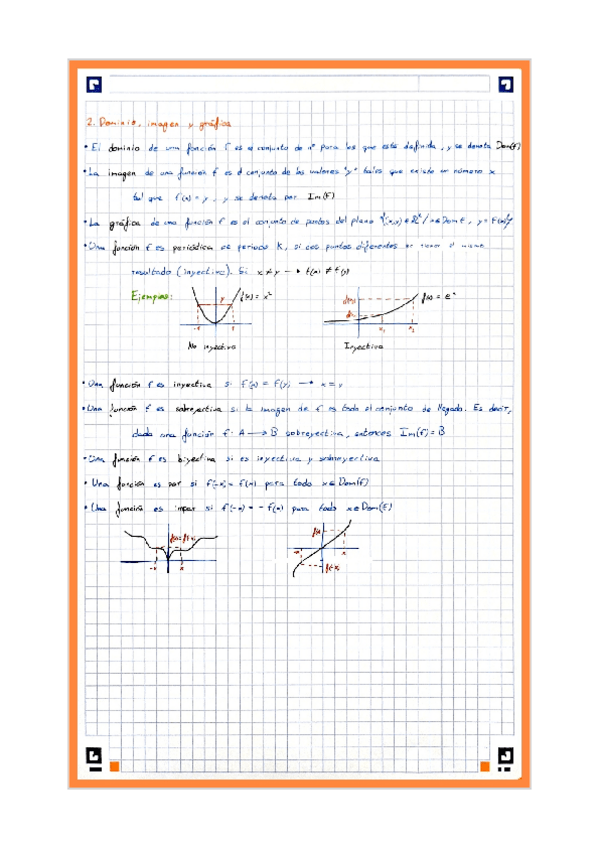 2. Dominio, imagen y gráfica
• El dominio de una función f es el conjunto de nº para los que está definida, y se denota Dom(f)
• La imagen de una función f es el conjunto de los valores "y" tales que existe un número x
tal que f(x) = y, y se denota por Im(f)
• La gráfica de una función f es el conjunto de puntos del plano {(x,y) ∈ R² / x ∈ Dom f, y = f(x)}
• Una función f es periódica de periodo K, si dos puntos diferentes no tienen el mismo
resultado (inyectiva). Si x ≠ y → f(x) ≠ f(y)
Ejemplos: y f(x) = x² f(x) = eˣ
-1 1 x₁ x₂
No inyectiva Inyectiva
• Una función f es inyectiva si f(x) = f(y) → x = y
• Una función f es sobreyectiva si la imagen de f es todo el conjunto de llegada. Es decir,
dada una función f: A → B sobreyectiva, entonces Im(f) = B
• Una función f es biyectiva si es inyectiva y sobreyectiva
• Una función es par si f(-x) = f(x) para todo x ∈ Dom(f)
• Una función es impar si f(-x) = -f(x) para todo x ∈ Dom(f)
f(x)=f(-x) f(x)
-x x -x x
f(-x)